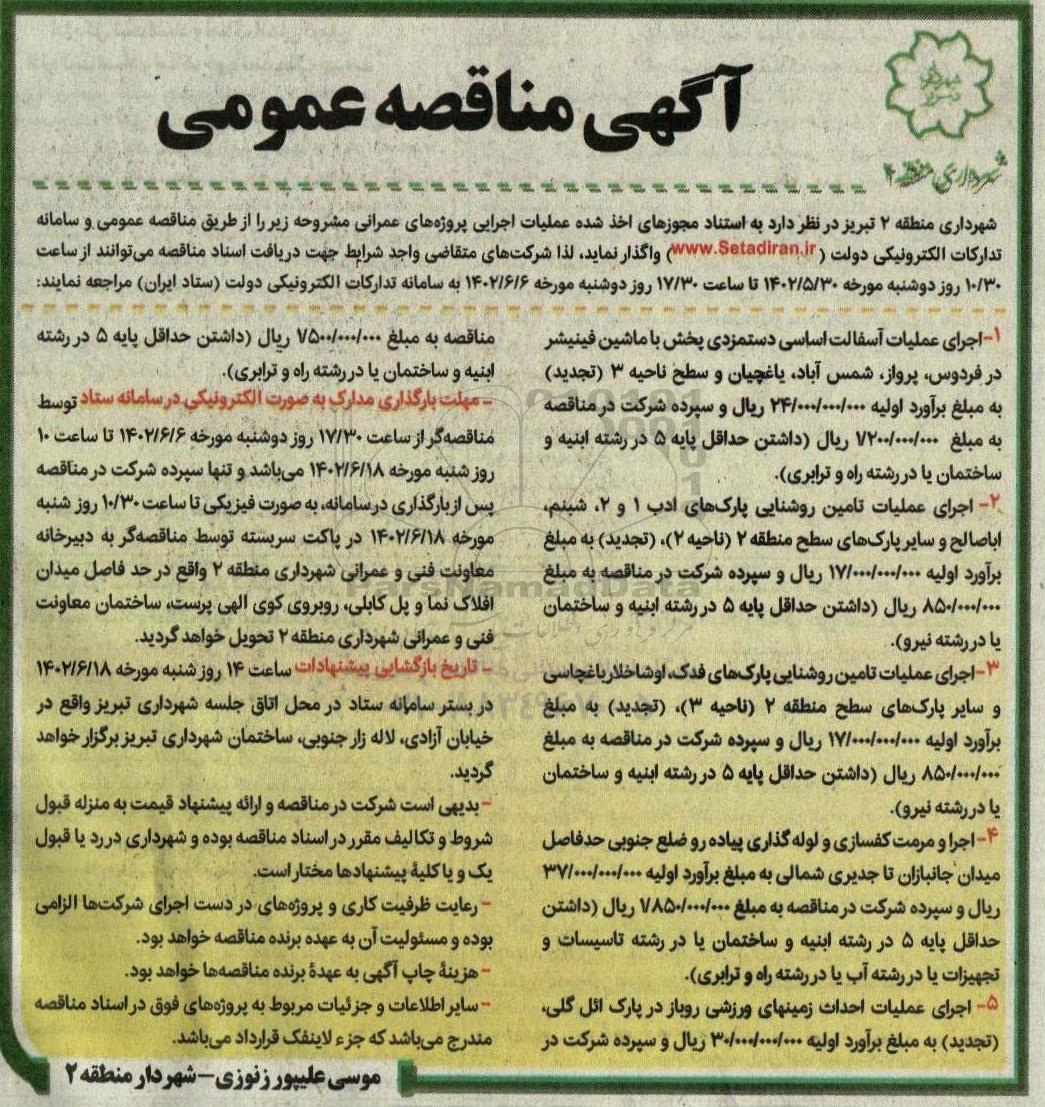 شهرداری تبریز
شهرداری منطقه ۲
آگهی مناقصه عمومی
شهرداری منطقه ۲ تبریز در نظر دارد به استناد مجوزهای اخذ شده عملیات اجرایی پروژه‌های عمرانی مشروحه زیر را از طریق مناقصه عمومی و سامانه
تدارکات الکترونیکی دولت (www.Setadiran.ir) واگذار نماید، لذا شرکت‌های متقاضی واجد شرایط جهت دریافت اسناد مناقصه می‌توانند از ساعت
۱۰/۳۰ روز دوشنبه مورخه ۱۴۰۲/۵/۳۰ تا ساعت ۱۷/۳۰ روز دوشنبه مورخه ۱۴۰۲/۶/۶ به سامانه تدارکات الکترونیکی دولت (ستاد ایران) مراجعه نمایند:
۱-اجرای عملیات آسفالت اساسی دستمزدی پخش با ماشین فینیشر
در فردوس، پرواز، شمس آباد، یاغچیان و سطح ناحیه ۳ (تجدید)
به مبلغ برآورد اولیه ۲۴/۰۰۰/۰۰۰/۰۰۰ ریال و سپرده شرکت در مناقصه
به مبلغ ۱/۲۰۰/۰۰۰/۰۰۰ ریال (داشتن حداقل پایه ۵ در رشته ابنیه و
ساختمان یا در رشته راه و ترابری).
۲- اجرای عملیات تامین روشنایی پارک‌های ادب ۱ و ۲، شبنم،
اباصالح و سایر پارک‌های سطح منطقه ۲ (ناحیه ۲)، (تجدید) به مبلغ
برآورد اولیه ۱۷/۰۰۰/۰۰۰/۰۰۰ ریال و سپرده شرکت در مناقصه به مبلغ
۸۵۰/۰۰۰/۰۰۰ ریال (داشتن حداقل پایه ۵ در رشته ابنیه و ساختمان
یا در رشته نیرو).
۳-اجرای عملیات تامین روشنایی پارک‌های فدک، اوشاخلار باغچاسی
و سایر پارک‌های سطح منطقه ۲ (ناحیه ۳)، (تجدید) به مبلغ
برآورد اولیه ۱۷/۰۰۰/۰۰۰/۰۰۰ ریال و سپرده شرکت در مناقصه به مبلغ
۸۵۰/۰۰۰/۰۰۰ ریال (داشتن حداقل پایه ۵ در رشته ابنیه و ساختمان
یا در رشته نیرو).
۴-اجرا و مرمت کفسازی و لوله گذاری پیاده رو ضلع جنوبی حدفاصل
میدان جانبازان تا جدیری شمالی به مبلغ برآورد اولیه ۳۷/۰۰۰/۰۰۰/۰۰۰
ریال و سپرده شرکت در مناقصه به مبلغ ۱/۸۵۰/۰۰۰/۰۰۰ ریال (داشتن
حداقل پایه ۵ در رشته ابنیه و ساختمان یا در رشته تاسیسات و
تجهیزات یا در رشته آب یا در رشته راه و ترابری).
۵- اجرای عملیات احداث زمینهای ورزشی روباز در پارک ائل گلی،
(تجدید) به مبلغ برآورد اولیه ۳۰/۰۰۰/۰۰۰/۰۰۰ ریال و سپرده شرکت در
مناقصه به مبلغ ۱/۵۰۰/۰۰۰/۰۰۰ ریال (داشتن حداقل پایه ۵ در رشته
ابنیه و ساختمان یا در رشته راه و ترابری).
- مهلت بارگذاری مدارک به صورت الکترونیکی در سامانه ستاد توسط
مناقصه‌گر از ساعت ۱۷/۳۰ روز دوشنبه مورخه ۱۴۰۲/۶/۶ تا ساعت ۱۰
روز شنبه مورخه ۱۴۰۲/۶/۱۸ می‌باشد و تنها سپرده شرکت در مناقصه
پس از بارگذاری در سامانه، به صورت فیزیکی تا ساعت ۱۰/۳۰ روز شنبه
مورخه ۱۴۰۲/۶/۱۸ در پاکت سربسته توسط مناقصه‌گر به دبیرخانه
معاونت فنی و عمرانی شهرداری منطقه ۲ واقع در حد فاصل میدان
افلاک نما و پل کابلی، روبروی کوی الهی پرست، ساختمان معاونت
فنی و عمرانی شهرداری منطقه ۲ تحویل خواهد گردید.
- تاریخ بازگشایی پیشنهادات ساعت ۱۴ روز شنبه مورخه ۱۴۰۲/۶/۱۸
در بستر سامانه ستاد در محل اتاق جلسه شهرداری تبریز واقع در
خیابان آزادی، لاله زار جنوبی، ساختمان شهرداری تبریز برگزار خواهد
گردید.
- بدیهی است شرکت در مناقصه و ارائه پیشنهاد قیمت به منزله قبول
شروط و تکالیف مقرر در اسناد مناقصه بوده و شهرداری در رد یا قبول
یک و یا کلیهٔ پیشنهادها مختار است.
- رعایت ظرفیت کاری و پروژه‌های در دست اجرای شرکت‌ها الزامی
بوده و مسئولیت آن به عهده برنده مناقصه خواهد بود.
- هزینهٔ چاپ آگهی به عهدهٔ برنده مناقصه‌ها خواهد بود.
- سایر اطلاعات و جزئیات مربوط به پروژه‌های فوق در اسناد مناقصه
مندرج می‌باشد که جزء لاینفک قرارداد می‌باشد.
موسی علیپور زنوزی - شهردار منطقه ۲